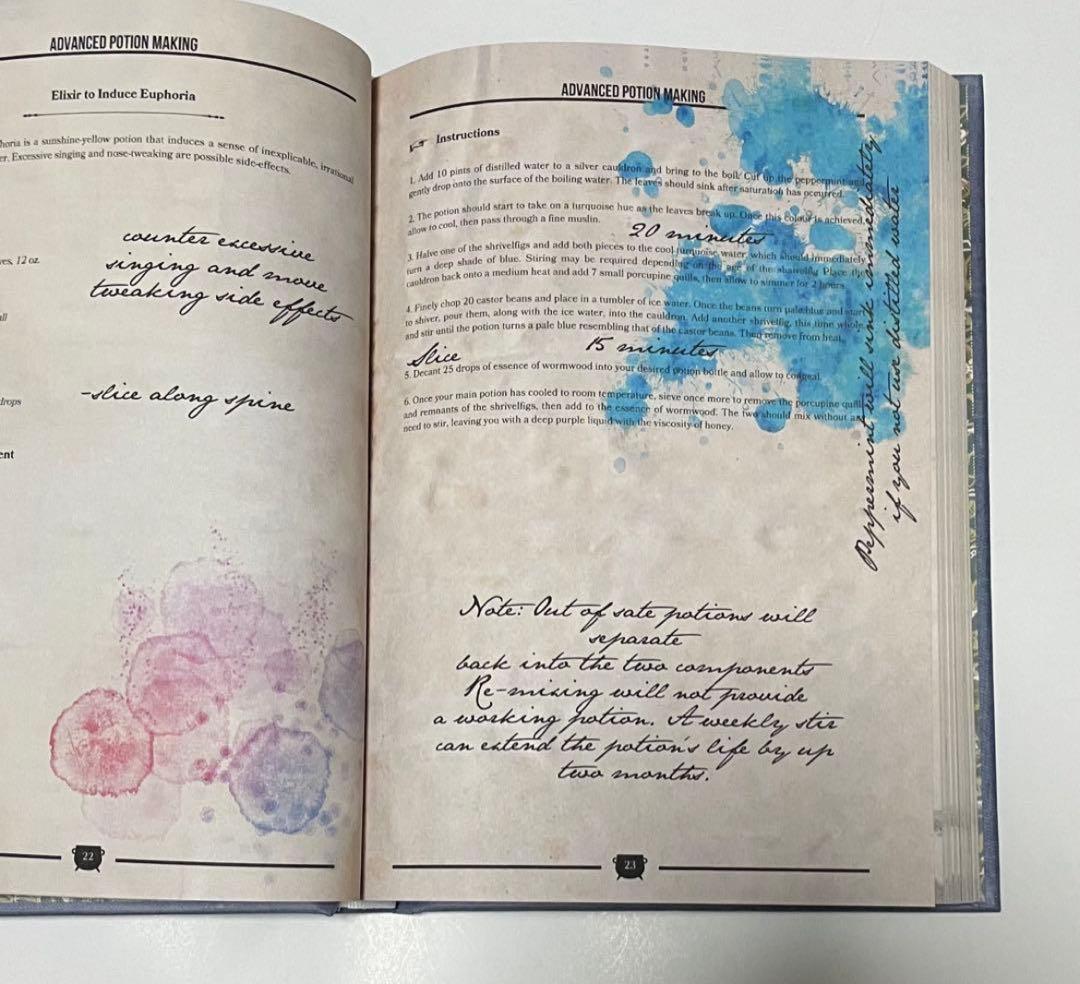 ADVANCED POTION MAKING
Elixir to Induce Euphoria
horia is a sunshine-yellow potion that induces a sense of inexplicable, irrational
er. Excessive singing and nose-tweaking are possible side-effects.
counter excessive
singing and move
tweaking side effects
ves, 12 oz.
all
-slice along spine
drops
ent
22
ADVANCED POTION MAKING
Instructions
1. Add 10 pints of distilled water to a silver cauldron and bring to the boil. Cut up the peppermint and
gently drop onto the surface of the boiling water. The leaves should sink after saturation has occurred.
2. The potion should start to take on a turquoise hue as the leaves break up. Once this colour is achieved,
allow to cool, then pass through a fine muslin.
20 minutes
3. Halve one of the shrivelfigs and add both pieces to the cool turquoise water, which should immediately
turn a deep shade of blue. Stiring may be required depending on the age of the shrivelfig. Place the
cauldron back onto a medium heat and add 7 small porcupine quills, then allow to simmer for 2 hours.
4. Finely chop 20 castor beans and place in a tumbler of ice water. Once the beans turn pale blue and start
to shiver, pour them, along with the ice water, into the cauldron. Add another shrivelfig, this time whole,
and stir until the potion turns a pale blue resembling that of the castor beans. Then remove from heat.
Slice 15 minutes
5. Decant 25 drops of essence of wormwood into your desired potion bottle and allow to congeal.
6. Once your main potion has cooled to room temperature, sieve once more to remove the porcupine quills
and remnants of the shrivelfigs, then add to the essence of wormwood. The two should mix without
need to stir, leaving you with a deep purple liquid with the viscosity of honey.
Peppermint will sink immediately
if you not use distilled water
Note: Out of sate potions will
separate
back into the two components
Re-mixing will not provide
a working potion. A weekly stir
can extend the potion's life by up
two months.
23